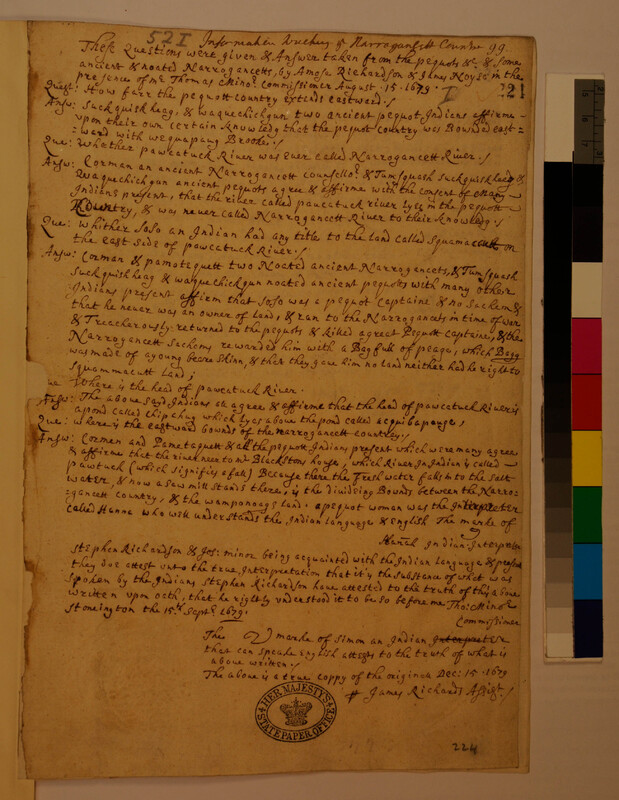 521 Information touching ye Narrogansett Countr 99.
These Questions were given & Answer taken from the pequots &c. & some
ancient & noated Narrogancetts, by Amos Richardson & James Noyse in the
presence of mr Thomas Minor Commissioner August. 15. 1679. I 221
Quest: How farr the pequott Country extends eastward./
Answ: Suckquishkaag, & waquechichgun two ancient pequot Indians affirme
upon their own certain knowledg that the pequot Country was Bounded east=
=ward with wequapaug Brooke./
Que: Whether pawcatuck River was ever called Narrogancett River./
Answ: Corman an ancient Narrogancett Counsellor & Tumsquash Suckquishkaag &
Waquechichgun ancient pequotts agree & affirme with the consent of many
Indians present, that the river called paucatuck river lyes in the pequott
Country, & was never called Narrogancett River to their knowledg./
Que: whither Soso an Indian had any title to the land called Squamacutt on
the east side of pawcatuck River:/
Answ: Corman & pamotaquett two Noated ancient Narrogancets, & Tumsquash
Suckquishkaag & waquechickgun noated ancient pequots with many other
Indians present affirm that Soso was a pequot Captaine & no Sachem &
that he never was an owner of land, & ran to the Narrogancets in time of war
& Treacherously returned to the pequots & kiled a great Pequott Captaine, & the
Narrogancett Sachems rewarded him with a Bag full of peage, which Bagg
was made of a young beare skinn, & that they gave him no land neither had he right to
Squammacutt Land;
Que Where is the head of pawcatuck River.
Answ: The above sayd Indians all agree & affirme that the head of pawcatuck River is
a pond called Chipachug which lyes above the pond called acquibapauge,
Que: where is the eastward bounds of the narrogancett countrey./
Answ: Corman and Pametaquett & all the pequott Indians present which were many agree
& affirme that the river neer to mr Blackstons house, which River In Indian is called
pawtuck (which signifies a fal) Because there the Fresh water falls into the Salt
water, & now a saw mill stands there, is the dividing Bounds between the Narro=
=gancett country, & the wamponnags land. a pequot woman was the Interpreter
called Hanna who well understands the Indian Language & English The marke of
Hanah Indian Interpreter
Stephen Richardson & Jos: minor being acquainted with the Indian Language & present
they due attest unto the true Interpretation that it's the substance of what was
spoken by the Indians Stephen Richardson have attested to the truth of this above
written upon oath, that he rightly understood it to be so before me Tho: Minor
Stoneington the 15.th Sept: 1679. Commissioner
The marke of Simon an Indian Interpreter
that can speake english attests to the truth of what is
above written./
The above is a true coppy of the originall Dec: 15. 1679
James Richards Assist./
HER MAJESTY'S STATE PAPER OFFICE
224